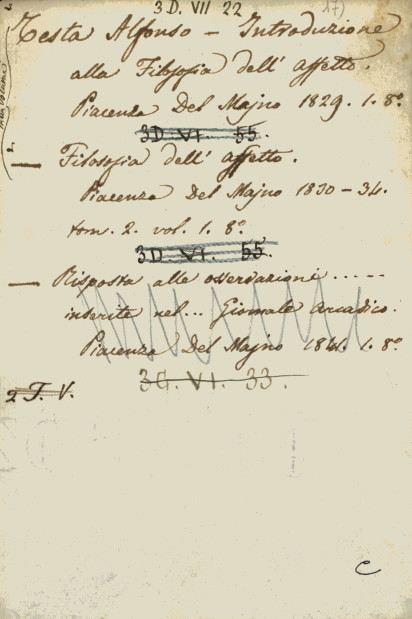 3D. VII 22
17)
Testa Alfonso — Introduzione
alla Filosofia dell' affetto.
Piacenza Del Majno 1829. 1. 8º
3D. VI. 55.
— Filosofia dell' affetto.
Piacenza Del Majno 1830-34.
tom. 2. vol. 1. 8º.
3D. VI. 55.
— Risposta alle osservazioni .....
inserite nel... Giornale Arcadico.
Piacenza Del Majno 1841. 1. 8º
3G. VI. 33.
2 T. V.
C